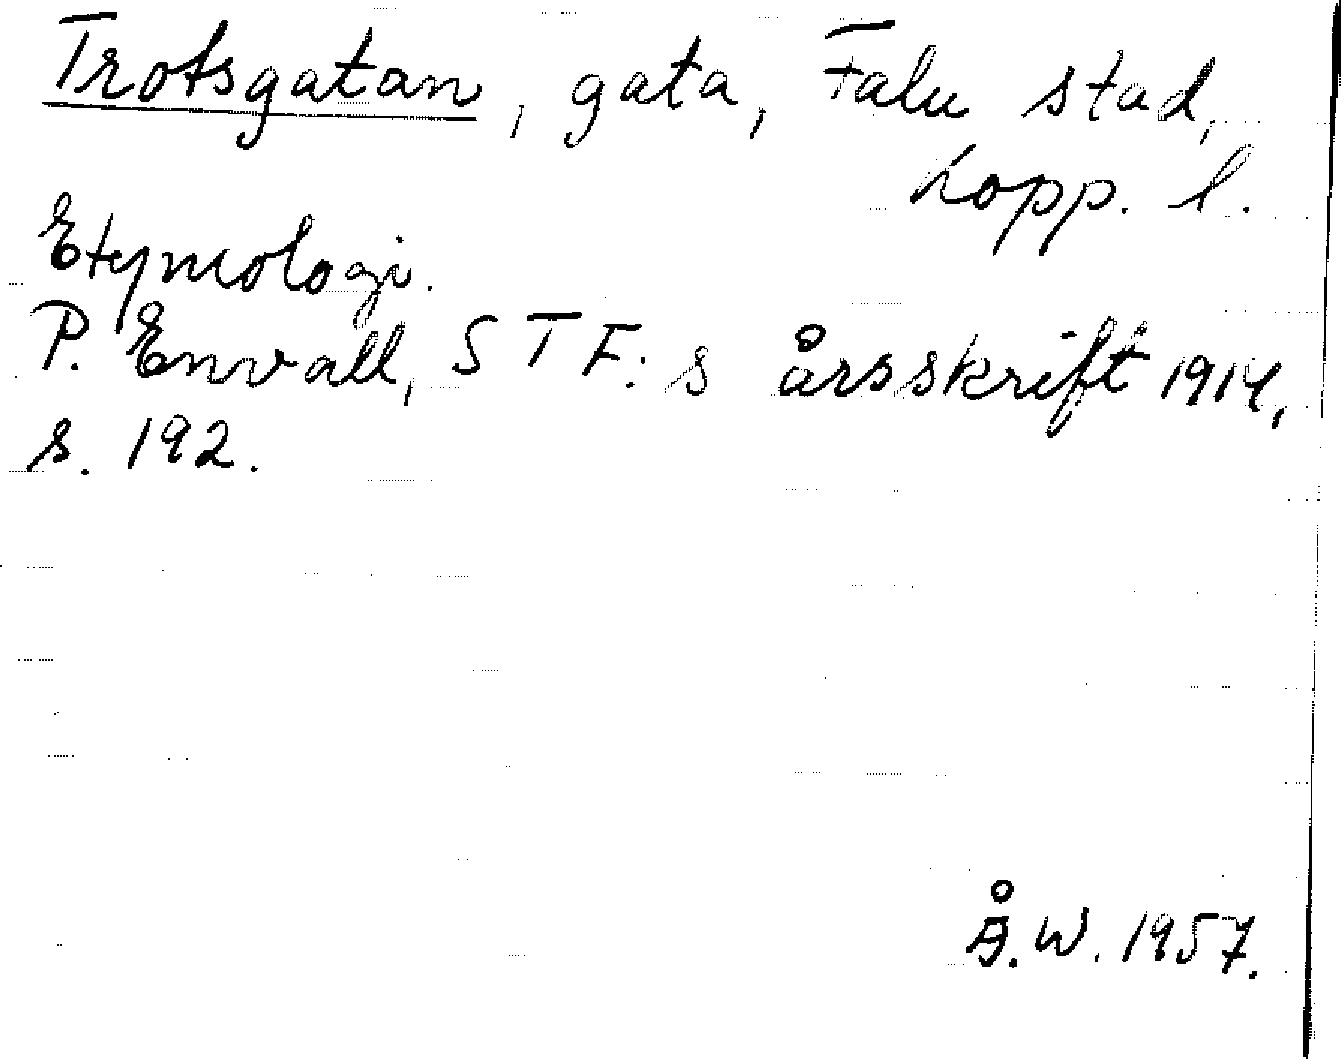 Trotsgatan, gata, Falu stad,
Kopp. l.
Etymologi.
P. Envall, STF:s årsskrift 1914,
s. 192.
Å.W. 1957.